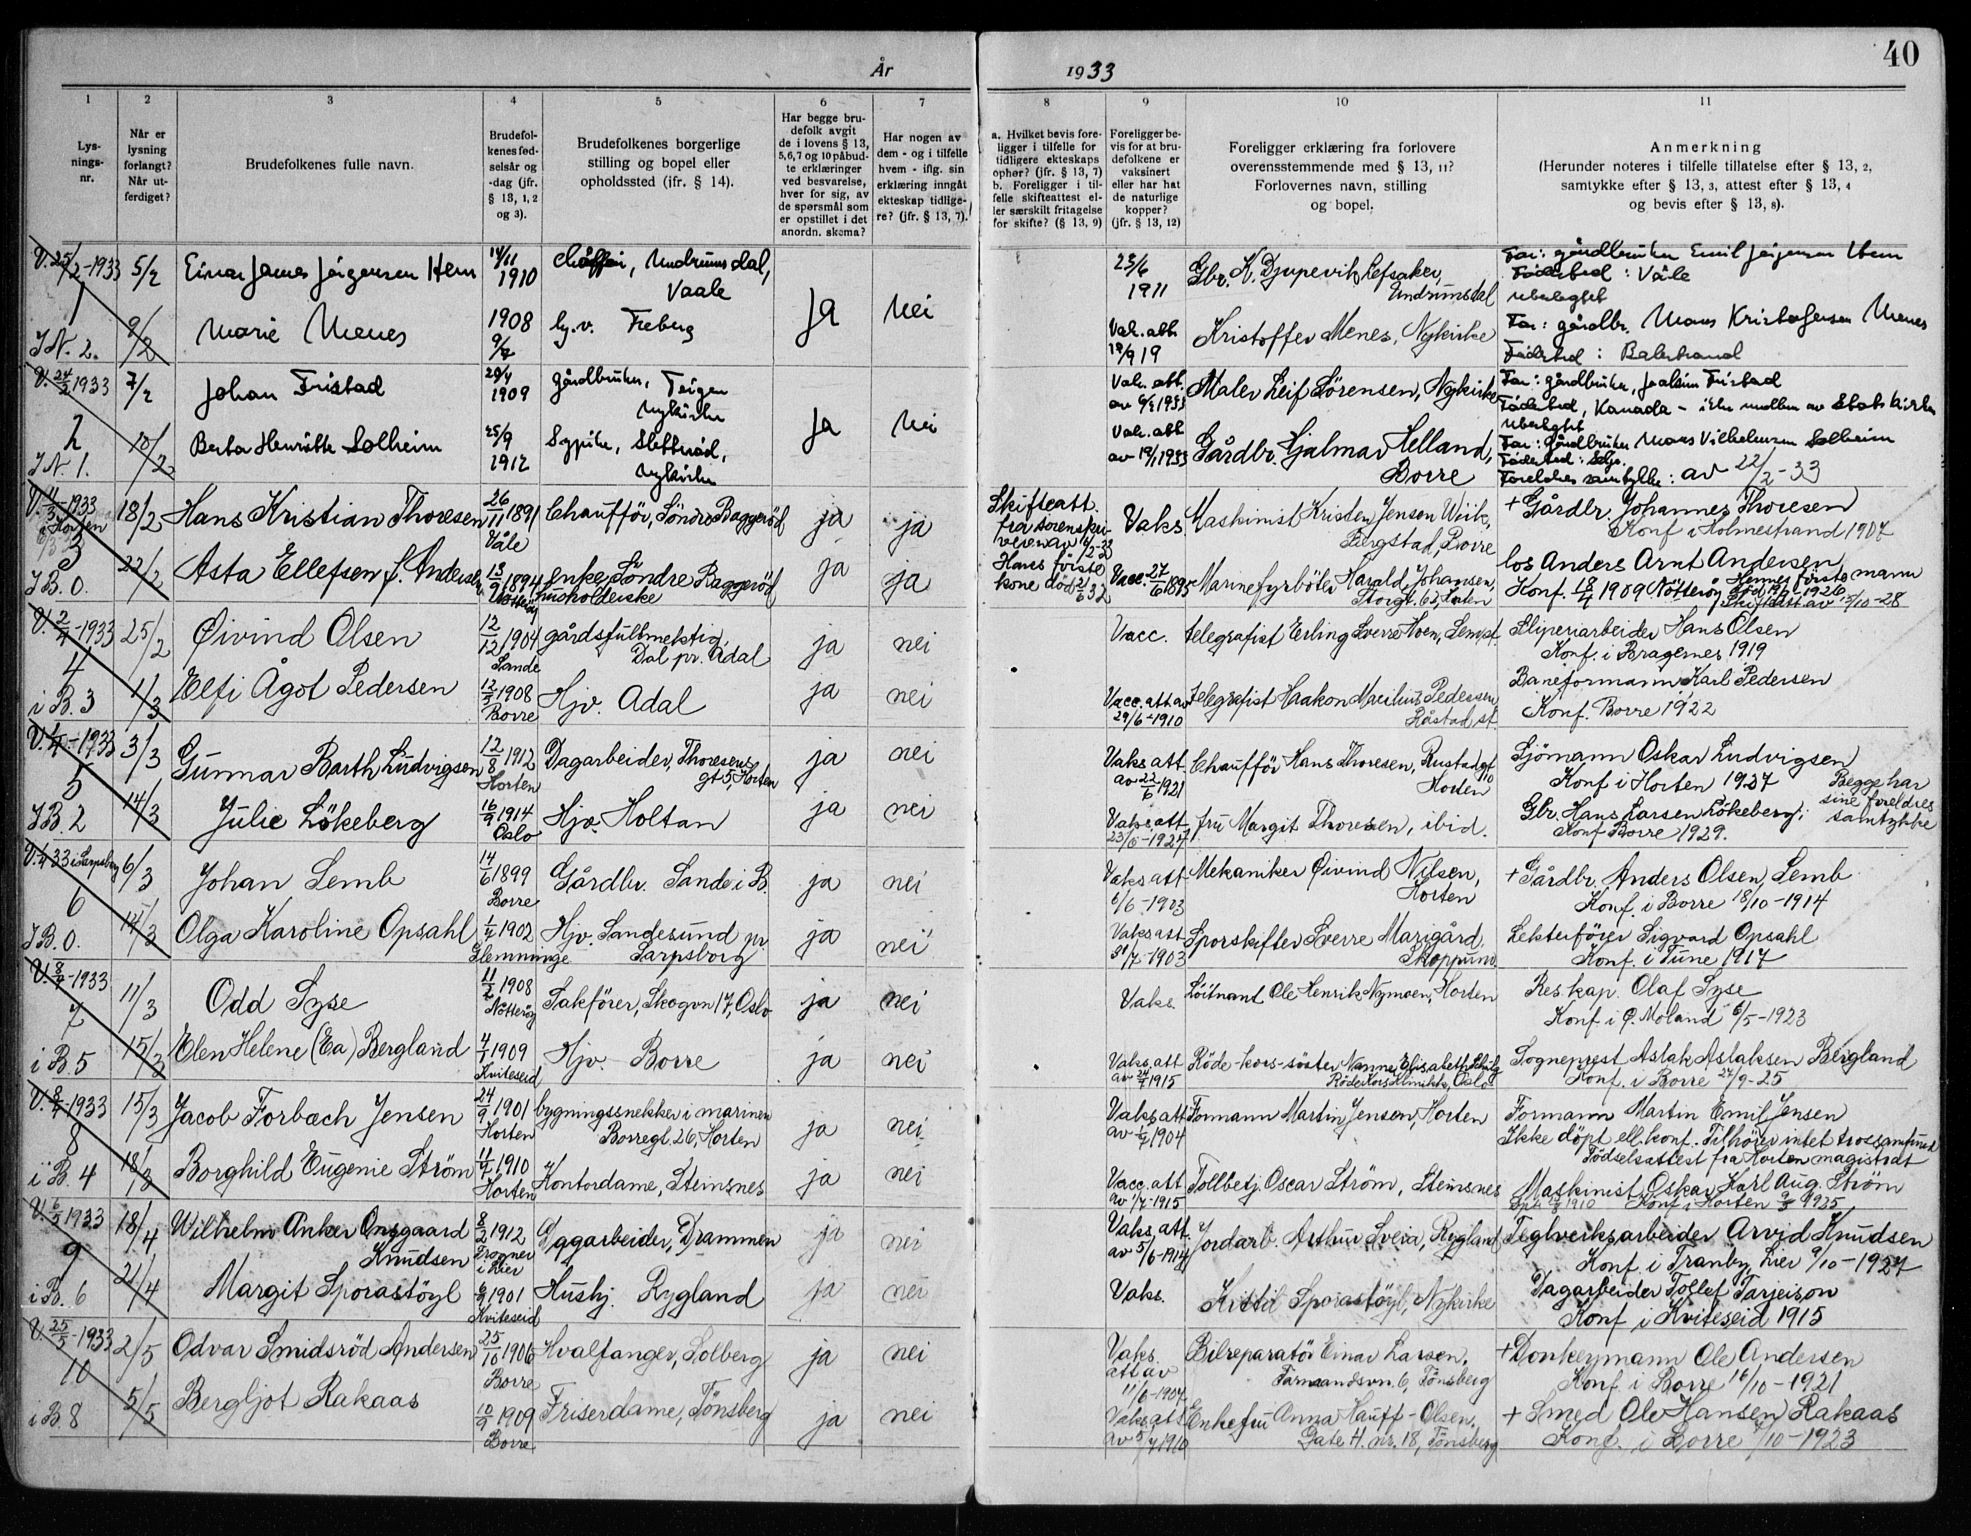 40
År
1933
1
2
3
4
5
6
7
8
9
10
11
Lys-
nings-
nr.
Når er
lysning
forlangt?
Når ut-
ferdiget?
Brudefolkenes fulle navn.
Brudefol-
kenes fød-
selsår og
-dag (jfr.
§ 13, 1, 2
og 3).
Brudefolkenes borgerlige
stilling og bopel eller
opholdssted (ifr. § 14).
Har begge bru-
defolk avgit
de i lovens § 13,
5,6,7 og 10 påbud-
te erklæringer
ved besvarelse,
hver for sig, av
de spørsmål som
er opstillet i det
anordn. skema?
Har nogen av
dem - og i tilfelle
hvem - iflg. sin
erklæring inngåt
ekteskap tidlige-
re? (jfr. § 13, 7).
a. Hvilket bevis fore-
ligger i tilfelle for
tidligere ekteskaps
ophør? (jfr. § 13, 7)
b. Foreligger i til-
felle skifteattest el-
ler særskilt fritagelse
for skifte? (§ 13, 9)
Foreligger be-
vis for at bru-
defolkene er
vaksinert
eller har hat
de naturlige
kopper?
(jfr. § 13, 12)
Foreligger erklæring fra forlovere
overensstemmende med § 13, 11?
Forlovernes navn, stilling
og bopel.
Anmerkning
(Herunder noteres i tilfelle tillatelse efter § 13, 2,
samtykke efter § 13, 3, attest efter § 13, 4
og bevis efter § 13, 8).
V. 25/2-1933
1
I N. 2.
5/2
9/2
Einar James Jörgensen Hem
14/11
1910
Undrumsdal,
Vaale
Ja
Nei
23/6
1911
Gbr. K. Djupevik, Lefsaker,
Undrumsdal
Far: gårdbruker Emil Jörgensen Hem
Födested: Våle
Marie Menes
1908
Freberg
Vak. att.
Kristoffer Menes, Nykirke
Far: gårdbr. Mons Kristofersen Menes
Födested: Balestrand
V. 24/2 1933
2
I N. 1.
7/2
10/2
Johan Fristad
29/4
1909
gårdbruker, Teigen
Nykirke
Ja
Nei
Vak. att.
av 6/2 1933
Maler Leif Sörensen, Nykirke
Far: gårdbruker, Joakim Fristad
Födested, Kanada - ikke medlem av Statskirken
Berta Henriette Solheim
25/9
1912
Sletterød,
Nykirke
Vak. att
Gårdbr. Hjalmar Helland,
Borre
Far: Gårdbruker Mons Vilhelmsen Solheim
Foreldres samtykke: av 22/2-33
1933
i Horten
3
I B. 0.
18/2
22/2
Hans Kristian Thoresen
26/11 1891
Våle
Chauffør, Söndre Baggeröd
ja
ja
Skifteatt.
fra sorenskri-
veren av
Hans förste
kone död
Vaks.
Maskinist Kristen Jenson Wiik,
Bergstad, Borre
+ Gårdbr. Johannes Thoresen
Konf i Holmestrand 1907
Asta Ellefsen f. Andersen
13/9 1894
Nötteröy
enke, Söndre Baggeröd
husholderske
ja
ja
Vacc. 27/6 1895
Marinefyrböter Harald Johansen,
Storgt. 62, Horten
los Anders Arnt Andersen
Konf. 18/4 1909 Nötteröy Hennes förste mann
15/10-28
V. 2/4-1933
4
i B. 3
25/2
1/3
Øivind Olsen
12/12 1904
Sande
gårdsfullmektig,
Dal pr. Adal
ja
nei
Vacc.
telegrafist Erling Sverre Moen,
Sliperiarbeider Hans Olsen
Konf. i Bragernes 1919
Elfi Ågot Pedersen
12/3 1908
Borre
Hjv. Adal
ja
nei
Vacc. att av
29/6-1910
Telegrafist Haakon Pedersen,
Råstad st.
Baneformann Karl Pedersen
Konf. Borre 1922
1933
5
I B. 2
3/3
14/3
Gunnar Barth Ludvigsen
12/8 1912
Horten
Dagarbeider, Thoresens
gt 5, Horten
ja
nei
Vaks att.
av 22/6 1921
Chauffør Hans Thoresen, Rustadgt
10
Horten
Sjömann Oskar Ludvigsen
Konf i Horten 1927
Begge har
sine foreldres
samtykke
Julie Lökeberg
16/9 1914
Oslo
Hjv. Holtan
ja
nei
Vaks att
fru Margit Thoresen, ibid.
Gbr. Hans Larsen Lökeberg;
Konf Borre 1929.
i Sarpsborg
6
I B. 0.
6/3
14/3
Johan Semb
14/6 1899
Borre
Gårdbr. Sande i B.
ja
nei
Vaks att
6/6-1923
Mekaniker Øivind Nilsen,
Horten
+ Gårdbr. Anders Olsen Semb
Konf. i Borre 18/10-1914
Olga Karoline Opsahl
1/4 1902
Glemminge
Hjv. Sandesund pr.
Sarpsborg
ja
nei
Vaks att
31/7-1903
Sporskifter Sverre Marigård,
Skoppum
Lekterförer Sigvard Opsahl
Konf. i Tune 1917
V. 8/4-1933
7
i B. 5
11/3
15/3
Odd Syse
11/2 1908
Nötteröy
Sakförer, Skogvn 17, Oslo
ja
nei
Vaks.
Löitnant Ole Henrik Nymoen, Horten
Res. kap. Olaf Syse
Konf i Ø. Moland 6/5-1923
Elen Helene (Ea) Bergland
4/1 1909
Kviteseid
Hjv. Borre
ja
nei
Vaks. att
1915
Röde-kors-söster Nanne Elisabeth
Oslo
Sogneprest Aslak Aslaksen Bergland
Konf. i Borre 27/9-25
V. 8/4 1933
8
i B. 4
15/3
18/3
Jacob Forbech Jensen
24/9 1901
Horten
bygningssnekker i marinen
Borregt. 26, Horten
ja
nei
Vaks. att
1904
Formann Martin Jensen, Horten
Formann Martin Emil Jensen
Ikke döpt ell. konf. Tilhörer intet trossamfund
Födselsattest fra Horten magistrat
Borghild Eugenie Ström
11/4 1910
Horten
Kontordame, Steinsnes
ja
nei
Vacc. att
av 1/7-1915
Tollbetj. Oscar Ström, Steinsnes
Maskinist Oskar Karl Aug. Ström
Konf i Horten 1925
V. 6/5 1933
9
i B. 6
18/4
21/4
Wilhelm Anker Onsgaard
Knudsen
8/2 1912
Frogner
i Lier
Bryggarbeider, Drammen
ja
nei
Vaks. att
av 5/6-1914
Jordarb. Arthur Sveia, Rygland
Teglverksarbeider Arvid Knudsen
Konf. i Tranby, Lier 9/10-1927
Margit Sporastöyl
1901
Kviteseid
Hushj. Rygland
ja
nei
Vaks.
Sporastöyl, Nykirke
Dagarbeider Tollef Tarjeison
Konf i Kviteseid 1915
V. 25/5-1933
10
i B 8
2/5
5/5
Odvar Smidsröd Andersen
25/10 1906
Borre
Hvalfanger, Solberg
ja
nei
Vaks.
att av
11/6-1907
Bilreparatör Einar Larsen,
Farmandsvn. 6, Tönsberg
+ Donkeymann Ole Andersen
Konf. i Borre 16/10-1921
Bergljot Rakaas
10/9 1909
Borre
Friserdame, Tönsberg
ja
nei
Vaks. att
av 5/7 1910
Enkefru Anna Hauff-Olsen,
Gate H. nr. 18, Tönsberg
+ Smed Ole Hansen Rakaas
Konf. i Borre 7/10-1923